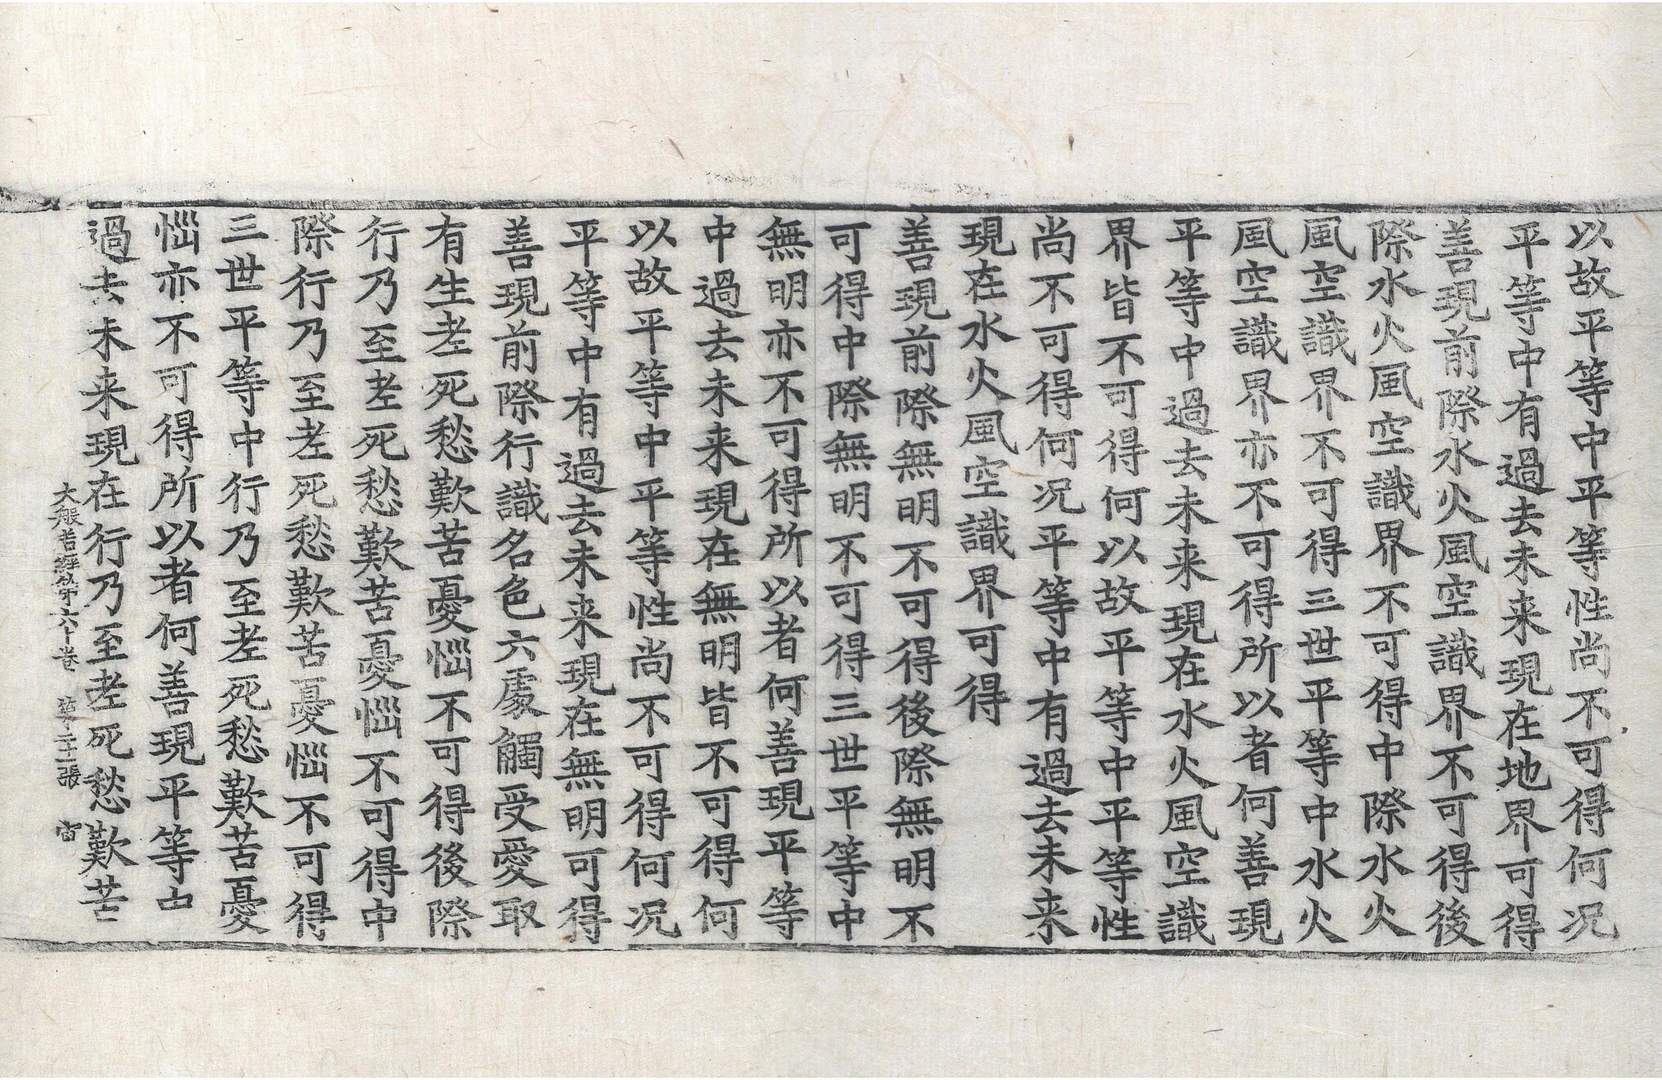 以故平等中平等性尚不可得何况
平等中有過去未来現在地界可得
善現前際水火風空識界不可得後
際水火風空識界不可得中際水火
風空識界不可得三世平等中水火
風空識界亦不可得所以者何善現
平等中過去未来現在水火風空識
界皆不可得何以故平等中平等性
尚不可得何况平等中有過去未来
現在水火風空識界可得
善現前際無明不可得後際無明不
可得中際無明不可得三世平等中
無明亦不可得所以者何善現平等
中過去未来現在無明皆不可得何
以故平等中平等性尚不可得何况
平等中有過去未来現在無明可得
善現前際行識名色六處觸受愛取
有生老死愁歎苦憂惱不可得後際
行乃至老死愁歎苦憂惱不可得中
際行乃至老死愁歎苦憂惱不可得
三世平等中行乃至老死愁歎苦憂
惱亦不可得所以者何善現平等中
過去未来現在行乃至老死愁歎苦
大般若經第六十卷 張 宙